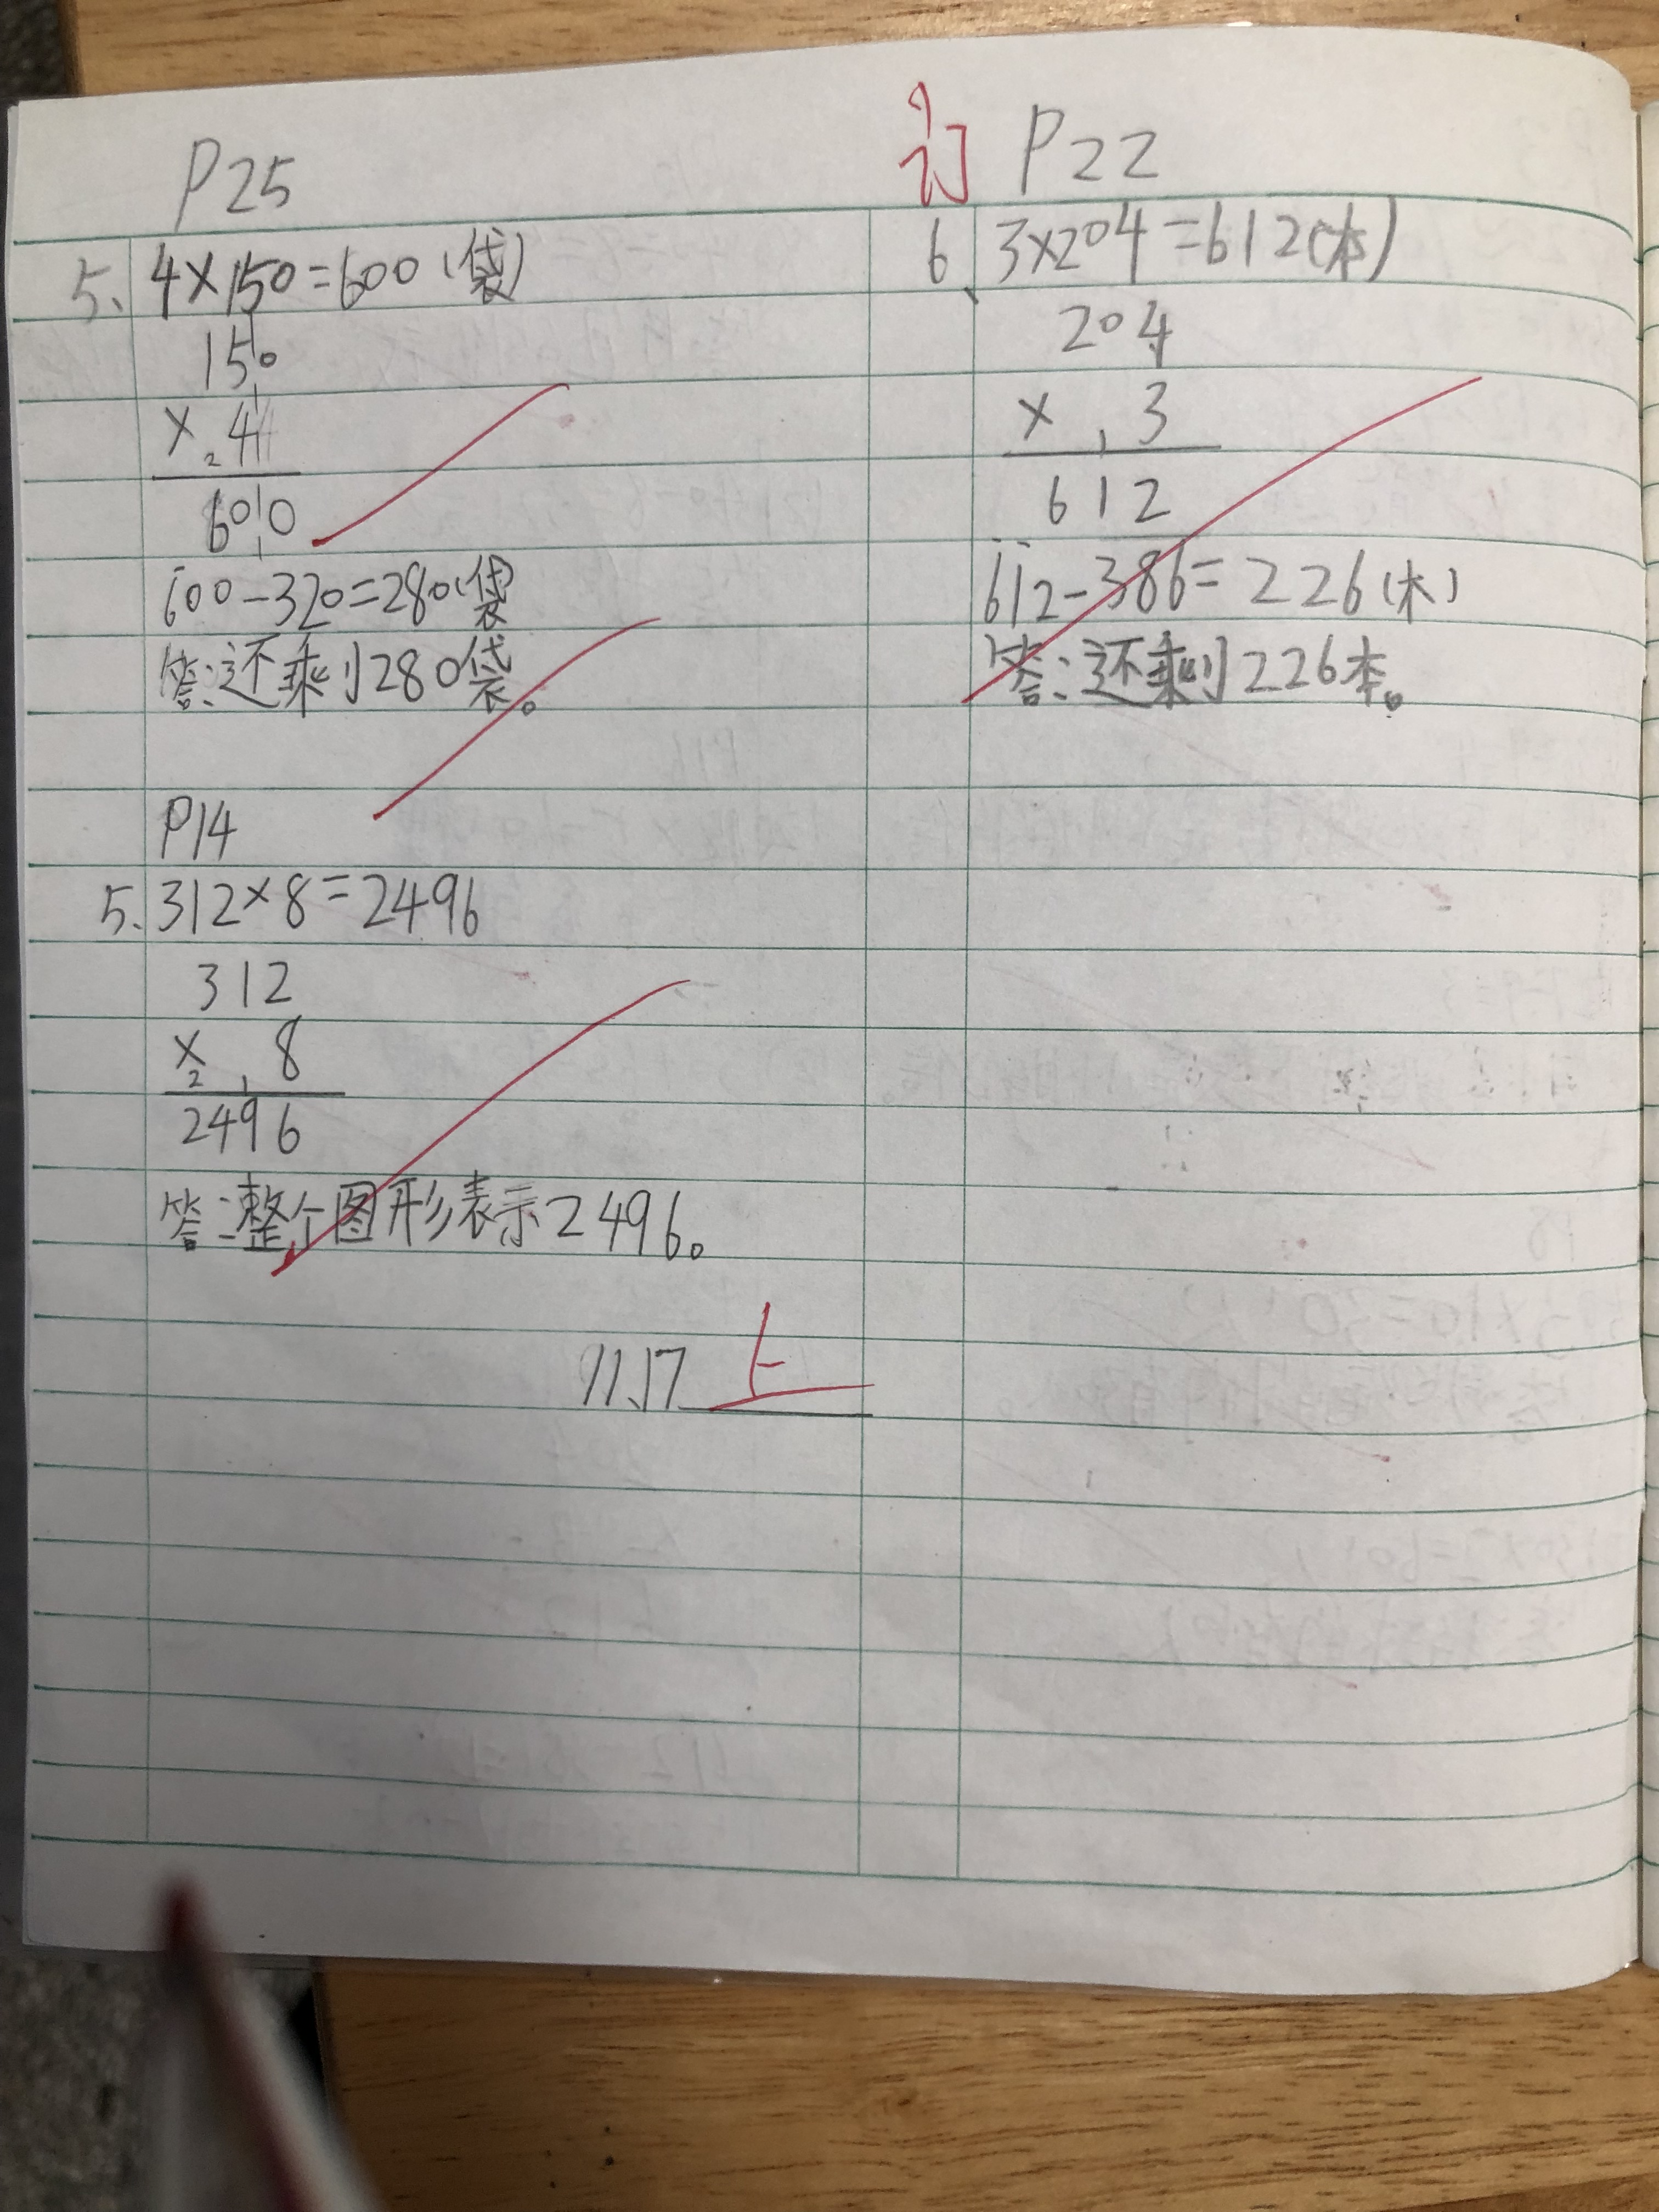 P25
5. 4×150=600(袋)
150
× 2 4
600
600-320=280(袋)
答:还剩280袋。
P14
5. 312×8=2496
312
× 2 1 8
2496
答:整个图形表示2496。
11.17
订 P22
6、 3×204=612(本)
204
× 1 3
612
612-386=226(本)
答:还剩226本。